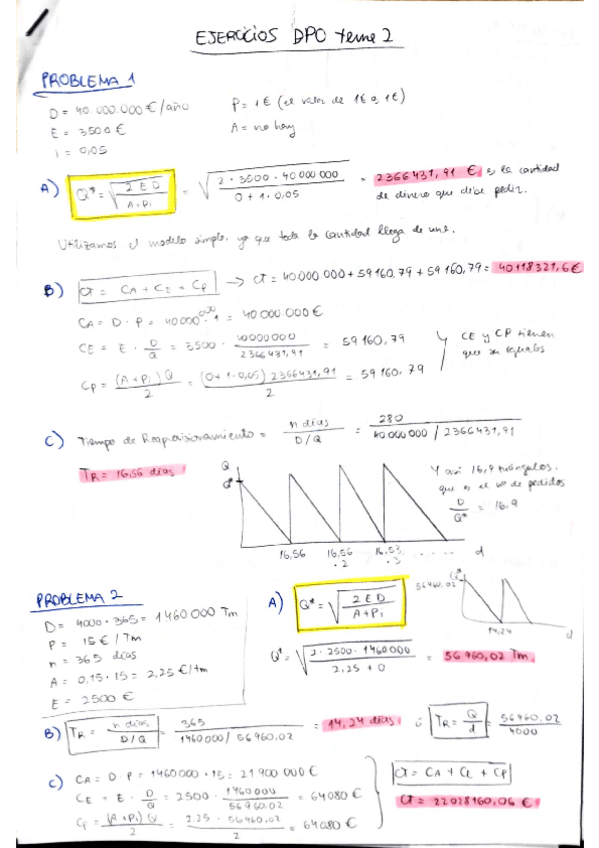 EJERCICIOS DPO tema 2
PROBLEMA 1
D = 40.000.000 €/año
P = 1 € (el valor de 1€ a 1€)
E = 3500 €
A = no hay
i = 0,05
A) Q* = √(2ED / A+Pi) = √(2 · 3500 · 40 000 000 / 0 + 1 · 0,05) = 2366431,91 € es la cantidad
de dinero que debe pedir.
Utilizamos el modelo simple, ya que toda la cantidad llega de una.
B) CT = CA + CE + CP → CT = 40 000 000 + 59 160,79 + 59 160,79 = 40118321,6 €
CA = D · P = 40000 000 · 1 = 40 000 000 €
CE = E · D/Q = 3500 · 40000000 / 2366431,91 = 59 160,79
CE y CP tienen
que ser iguales
CP = (A+Pi) Q / 2 = (0+1·0,05) 2366431,91 / 2 = 59 160,79
C) Tiempo de Reaprovisionamiento = n días / D/Q = 280 / 40 000 000 / 2366431,91
TR = 16,56 días
Q
Q*
16,56
16,56 · 2
16,53 · 3
. . . . .
d
Y así 16,9 triángulos,
que es el nº de pedidos
D/Q* = 16,9
PROBLEMA 2
D = 4000 · 365 = 1460 000 Tm
P = 15 € / Tm
n = 365 días
A = 0,15 · 15 = 2,25 €/tm
E = 2500 €
A) Q* = √(2ED / A+Pi)
56960,02
Q*
14,24
d
Q* = √(2 · 2500 · 1460000 / 2,25 + 0) = 56 960,02 Tm.
B) TR = n días / D/Q = 365 / 1460000 / 56960,02 = 14,24 días ó TR = Q/d = 56960,02 / 4000
C) CA = D · P = 1460000 · 15 = 21 900 000 €
CE = E · D/Q = 2500 · 1460000 / 56960,02 = 64080 €
CP = (A+Pi) Q / 2 = 2,25 · 56960,02 / 2 = 64080 €
CT = CA + CE + CP
CT = 22028160,06 €